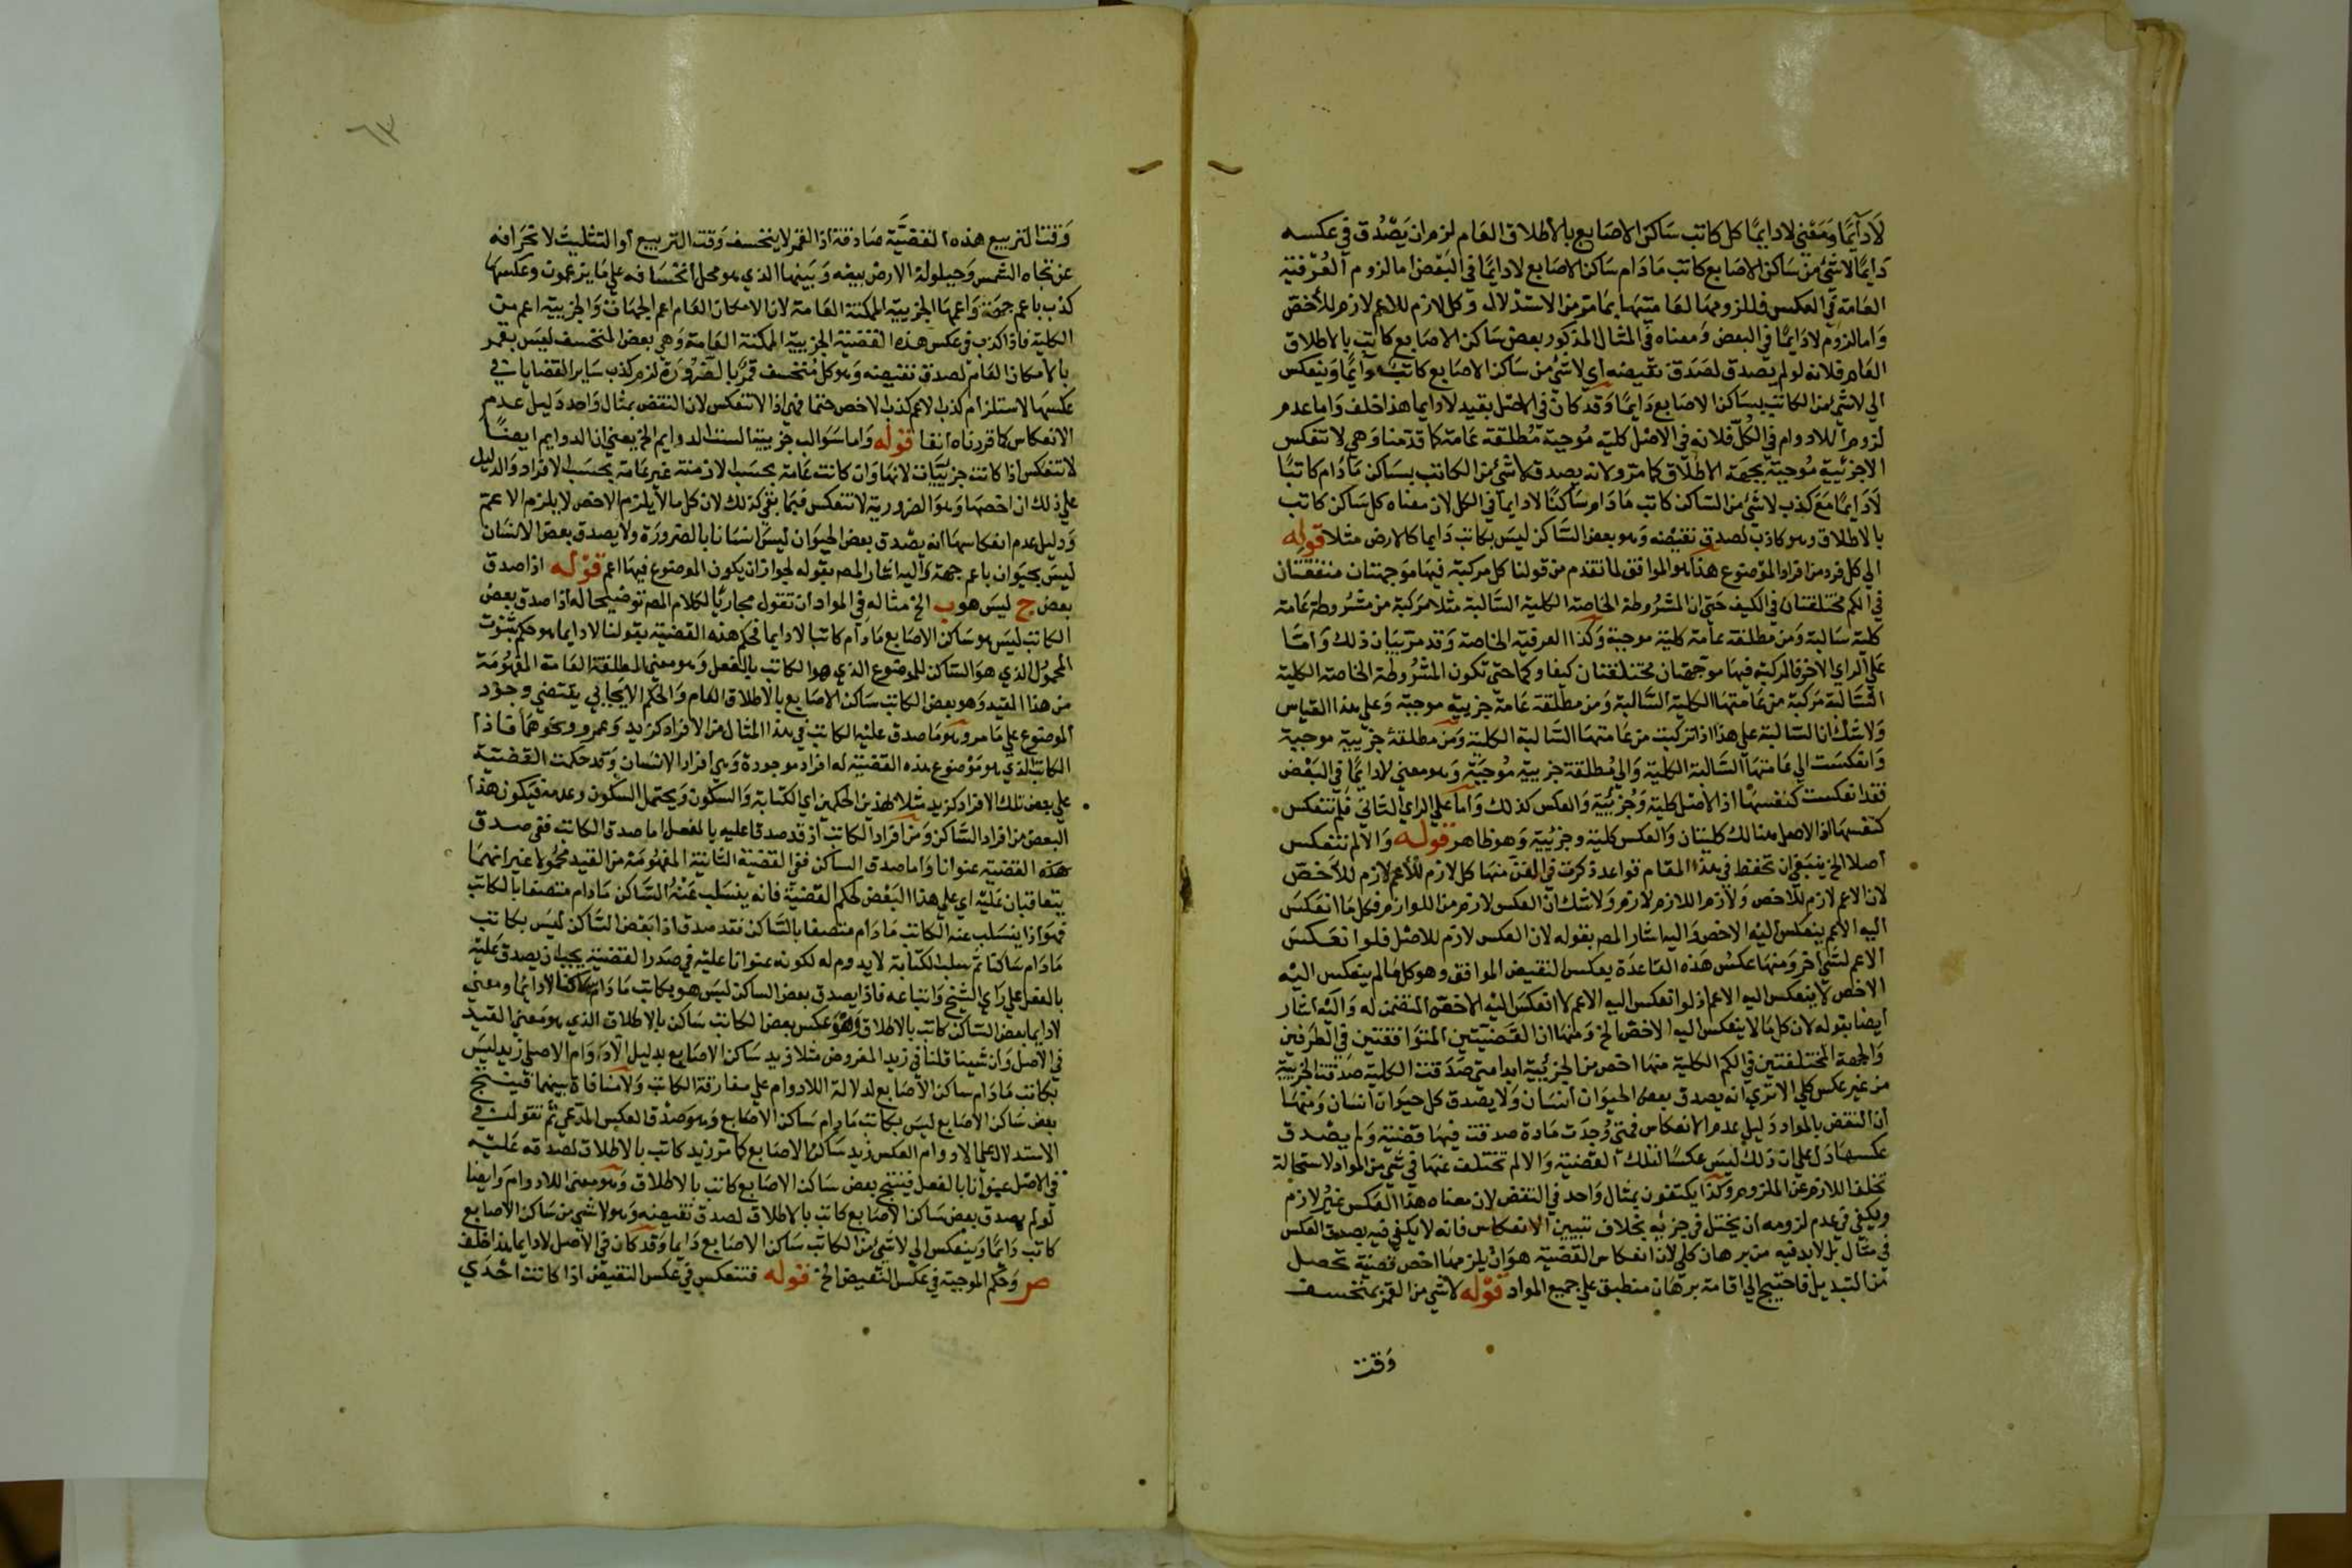 لادآيمًا ومعني لادايمًا كل كاتب ساكن الاصابع بالاطلاق العام لزم ان يصدق في عكسه
دايمًا لاشئ من ساكن الاصابع كاتب مادام ساكن الاصابع لادايمًا في البعض اما لزوم العرفية
العامة في العكس فللزومها لعاميتها بما مر من الاستدلال وكل لازم للاعم لازم للأخص
واما لزوم لادايمًا في البعض ومعناه في المثال المذكور بعض ساكن الاصابع كاتب بالاطلاق
العام فلانه لو لم يصدق لصدق نقيضه اي لاشئ من ساكن الاصابع كاتب دآيمًا وينعكس
الي لاشئ من الكاتب بساكن الاصابع دايمًا وقد كان في الاصل بقيد لادايما هذا خلف واما عدم
لزوم اللادوام في الكل فلانه في الاصل كلية موجبة مطلقة عامة كما قدمنا وهي لا تنعكس
الاجزئية موجبة بجهة الاطلاق كما مر ولانه يصدق لاشئ من الكاتب بساكن مادام كاتبًا
لادايمًا مع كذب لاشئ من الساكن كاتب مادام ساكنًا لادايما في الكل لان معناه كل ساكن كاتب
بالاطلاق وهو كاذب لصدق نقيضه وهو بعض الساكن ليس بكاتب دايما كالارض مثلا قوله
الي كل فرد من افراد الموضوع هذا هو الموافق لما تقدم من قولنا كل مركبة فيها موجهتان متفقتان
في الكم مختلفتان في الكيف حتي ان المشروطة الخاصة الكلية السالبة مثلا مركبة من مشروطة عامة
كلية سالبة ومن مطلقة عامة كلية موجبة وكذا العرفية الخاصة وقد مر بيان ذلك واما
علي الراي الاخر فالمركبة فيها موجهتان مختلفتان كيفا وكما حتي تكون المشروطة الخاصة الكلية
السالبة مركبة من عامتها الكلية السالبة ومن مطلقة عامة جزيية موجبة وعلي هذا القياس
ولاشك ان السالبة علي هذا اذا تركبت من عامتها السالبة الكلية ومن مطلقة جزيية موجبة
وانعكست الي عامتها السالبة الكلية والي مطلقة جزيية موجبة وهو معني لادايمًا في البعض
فقد انعكست كنفسها اذ الاصل كلية وجزئية والعكس كذلك واما علي الراي الثاني فلم تنعكس
كنفسها اذ الاصل هنالك كليتان والعكس كلية وجزئية وهو ظاهر قوله والا لم تنعكس
أصلا الخ ينبغي ان تحفظ في هذا المقام قواعد ذكرت في الفن منها كل لازم للأعم لازم للأخص
لان الاعم لازم للاخص ولازم اللازم لازم ولاشك ان العكس لازم من اللوازم فكل ما انعكس
اليه الاعم ينعكس اليه الاخص واليه اشار المص بقوله لان العكس لازم للاصل فلو انعكس
الاعم لشئ اخر ومنها عكس هذه القاعدة بعكس النقيض الموافق وهو كل ما لم ينعكس اليه
الاخص لا ينعكس اليه الاعم اذ لو انعكس اليه الاعم لا انعكس اليه الاخص المتضمن له واليه اشار
أيضا بقوله لان كل ما لا ينعكس اليه الاخص الخ ومنها ان القضيتين المتوافقتين في الطرفين
والجهة المختلفتين في الكم الكلية منها اخص من الجزئية ابدا متي صدقت الكلية صدقت الجزيية
من غير عكس كلي الا تري انه يصدق بعض الحيوان انسان ولا يصدق كل حيوان انسان ومنها
ان النقض بالمواد دليل عدم الانعكاس فمتي وجدت مادة صدقت فيها قضية ولم يصدق
عكسها دل علي ان ذلك ليس عكسا لتلك القضية والا لم تختلف عنها في شئ من المواد لاستحالة
تخلف اللازم عن الملزوم وكذا يكتفون بمثال واحد في النقض لان معناه هذا العكس غير لازم
ويكفي في عدم لزومه ان يختل في جزئه بخلاف تبيين الانعكاس فانه لا يكفي فيه يصدق العكس
في مثال بل لابد فيه من برهان كلي لان انعكاس القضية هو ان يلزمها اخص قضية تحصل
من التبديل فاحتيج الي اقامة برهان منطبق علي جميع المواد قوله لاشئ من القمر بمنخسف
وقت
٦٣
وقت التربيع هذه القضية صادقة اذ القمر لا ينخسف وقت التربيع أو التثليث لانحرافه
عن تجاه الشمس وحيلولة الارض بينه وبينها الذي هو محل انخسافه علي ما يزعمون وعكسها
كذب باعم جهة واعمها الجزيية الممكنة العامة لان الامكان العام اعم الجهات والجزيية اعم من
الكلية فاذا كذب في عكس هذه القضية الجزيية الممكنة العامة وهي بعض المنخسف ليس بقمر
بالامكان العام لصدق نقيضه وهو كل منخسف قمر بالضرورة لزم كذب ساير القضايا في
عكسها لاستلزام كذب الاعم كذب الاخص حتما فهي اذا لا تنعكس لان النقض بمثال واحد دليل عدم
الانعكاس كما قررناه انفا قوله واما سوالب جزييتا الست الدوايم الخ يعني ان الدوايم ايضًا
لا تنعكس اذا كانت جزيِّيات لانها وان كانت عامة بحسب الازمنة غير عامة بحسب الافراد والدليل
علي ذلك ان اخصها وهو الضرورية لا تنعكس فيما بقي كذلك لان كل ما لا يلزم الاخص لا يلزم الاعم
ودليل عدم انعكاسها انه يصدق بعض الحيوان ليس انسانا بالضرورة ولا يصدق بعض الانسان
ليس بحيوان باعم جهة واليه اشار المص بقوله لجواز ان يكون الموضوع فيها اعم قوله اذا صدق
بعض ج ليس هو ب الخ مثاله في المواد ان تقول مجاريًا لكلام المص توضيحا له اذا صدق بعض
الكاتب ليس هو ساكن الاصابع مادام كاتبا لادايما فحكم هذه القضية بقولنا لادايما هو حكم بثبوت
المحمول الذي هو الساكن للموضوع الذي هو الكاتب بالفعل وهو معني المطلقة العامة المفهومة
من هذا القيد وهو بعض الكاتب ساكن الاصابع بالاطلاق العام والحكم الايجابي يقتضي وجود
الموضوع علي ما مر وهو ما صدق عليه الكاتب في هذا المثال من الافراد كزيد وعمرو ونحوهما فاذا
الكاتب الذي هو موضوع هذه القضية له افراد موجودة وهي افراد الانسان وقد حكمت القضية
علي بعض تلك الافراد كزيد مثلا بهذين الحكمين اي الكتابة والسكون ويحتمل السكون وعدمه فيكون هذا
البعض من افراد الساكن ومن افراد الكاتب اذ قد صدقا عليه بالفعل اما صدق الكاتب ففي صدق
هذه القضية عنوانا واما صدق الساكن ففي القضية الثانية المفهومة من القيد محمولا غير انهما
يتعاقبان عليه اي علي هذا البعض لحكم القضية فانه ينسلب عنه الساكن مادام متصفا بالكاتب
فهو اذا ينسلب عنه الكاتب مادام متصفا بالساكن فقد صدق اذا بعض الساكن ليس بكاتب
مادام ساكنا ثم سلب الكتابة لا يدوم له لكونه عنوانا عليه في صدر القضية يجب ان يصدق عليه
بالفعل علي راي الشيخ واتباعه فاذا يصدق بعض الساكن ليس هو بكاتب مادام ساكنا لادايمًا ومعني
لادايما بعض الساكن كاتب بالاطلاق وهو عكس بعض الكاتب ساكن بالاطلاق الذي هو معني القيد
في الاصل وان شينا قلنا في زيد المفروض مثلا زيد ساكن الاصابع بدليل لادوام الاصل زيد ليس
بكاتب مادام ساكن الاصابع لدلالة اللادوام علي مفارقة الكاتب ولامنافاة بينهما فينتج
بعض ساكن الاصابع ليس بكاتب مادام ساكن الاصابع وهو صدق العكس المدعي ثم نقول في
الاستدلال علي لادوام العكس زيد ساكن الاصابع كما مر زيد كاتب بالاطلاق لصدقه عليه
في الاصل عنوانا بالفعل فينتج بعض ساكن الاصابع كاتب بالاطلاق وهو معني اللادوام وايضا
لو لم يصدق بعض ساكن الاصابع كاتب بالاطلاق لصدق نقيضه وهو لاشئ من ساكن الاصابع
كاتب دايمًا وينعكس الي لاشئ من الكاتب ساكن الاصابع دايما وقد كان في الاصل لادايما هذا خلف
ص وحكم الموجبة في عكس النقيض الخ قوله فتنعكس في عكس النقيض اذا كانت احدي